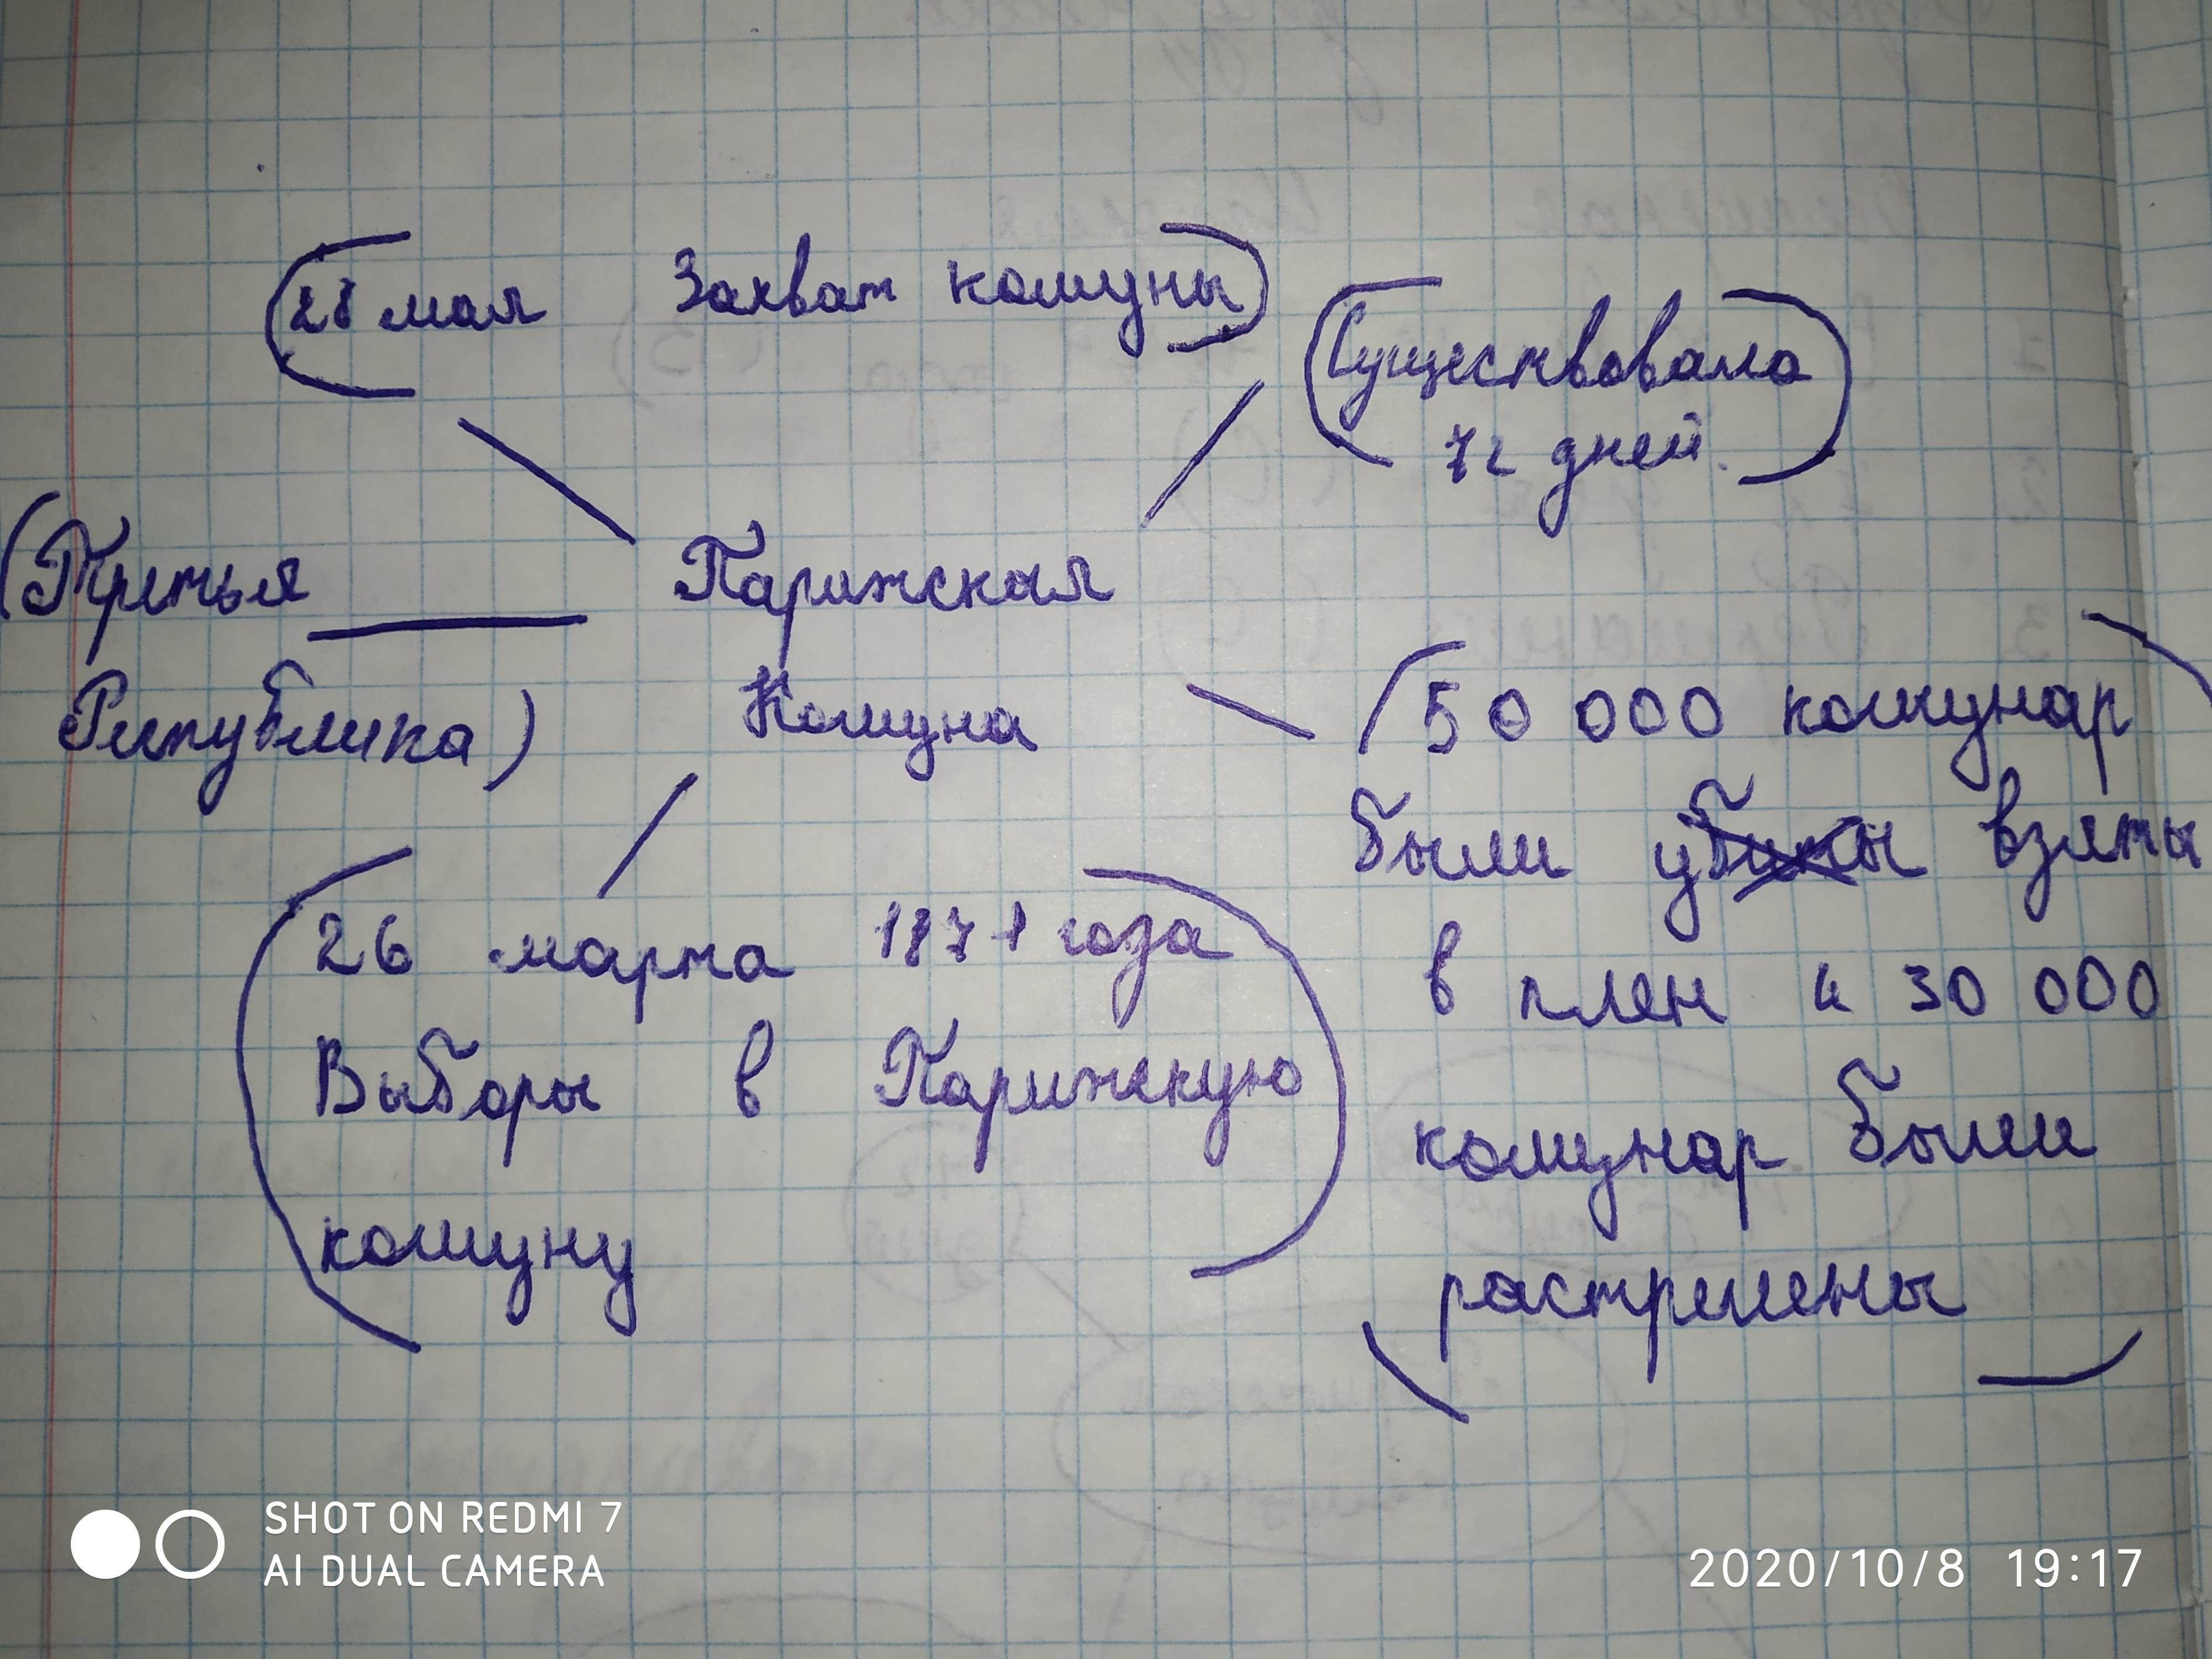 28 мая Захват комуны
Существовала
72 дней.
Третья
Република
Парижская
Комуна
50 000 комунар
были убиты взяты
в плен и 30 000
комунар были
растрелены
26 марта 1871 года
Выборы в Парижскую
комуну
SHOT ON REDMI 7
AI DUAL CAMERA
2020/10/8 19:17